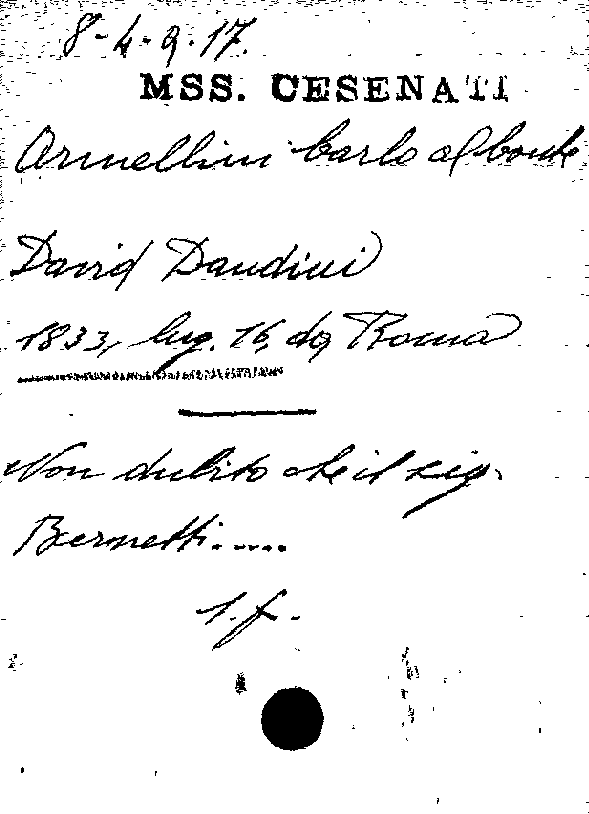 8-4-9.17.
MSS. CESENATI
Armellini Carlo al Conte
David Dandini
1833, lug. 16, da Roma
Non dubito che il sig.
Bernetti.....
1.f.